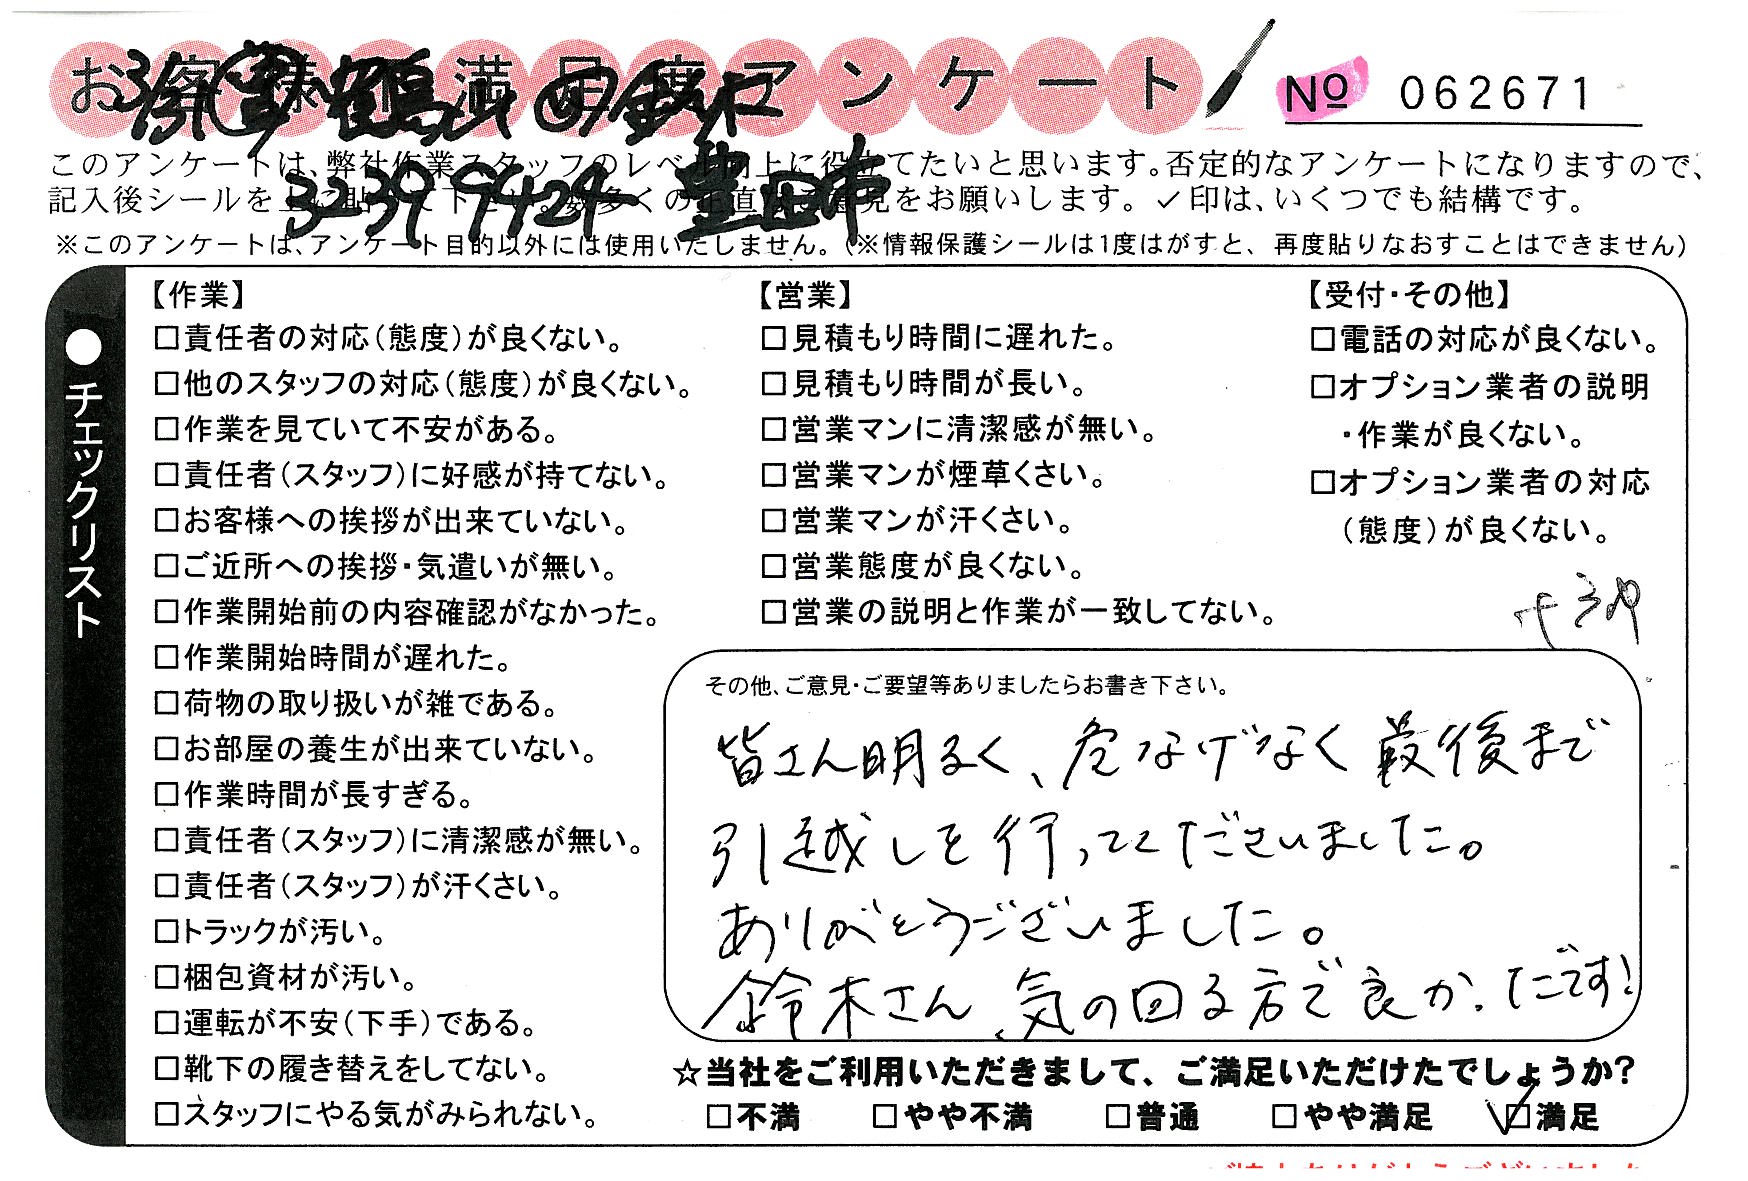 お客様満足度アンケート
No 062671
このアンケートは、弊社作業スタッフのレベル向上に役立てたいと思います。否定的なアンケートになりますので、
記入後シールを上に貼って下さい。数多くの正直なご意見をお願いします。✓印は、いくつでも結構です。
※このアンケートは、アンケート目的以外には使用いたしません。(※情報保護シールは1度はがすと、再度貼りなおすことはできません)
鶴 鈴木
3239 9424 豊田市
●チェックリスト
【作業】
□責任者の対応(態度)が良くない。
□他のスタッフの対応(態度)が良くない。
□作業を見ていて不安がある。
□責任者(スタッフ)に好感が持てない。
□お客様への挨拶が出来ていない。
□ご近所への挨拶・気遣いが無い。
□作業開始前の内容確認がなかった。
□作業開始時間が遅れた。
□荷物の取り扱いが雑である。
□お部屋の養生が出来ていない。
□作業時間が長すぎる。
□責任者(スタッフ)に清潔感が無い。
□責任者(スタッフ)が汗くさい。
□トラックが汚い。
□梱包資材が汚い。
□運転が不安(下手)である。
□靴下の履き替えをしてない。
□スタッフにやる気がみられない。
【営業】
□見積もり時間に遅れた。
□見積もり時間が長い。
□営業マンに清潔感が無い。
□営業マンが煙草くさい。
□営業マンが汗くさい。
□営業態度が良くない。
□営業の説明と作業が一致してない。
【受付・その他】
□電話の対応が良くない。
□オプション業者の説明
・作業が良くない。
□オプション業者の対応
(態度)が良くない。
その他、ご意見・ご要望等ありましたらお書き下さい。
皆さん明るく、危なげなく最後まで
引越しを行ってくださいました。
ありがとうございました。
鈴木さん、気の回る方で良かったです!
☆当社をご利用いただきまして、ご満足いただけたでしょうか?
□不満 □やや不満 □普通 □やや満足 ☑満足